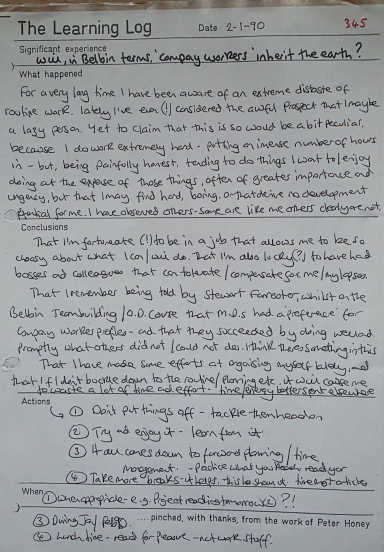 The Learning Log Date 2-1-90 345
Significant experience
will, in Belbin terms, 'company workers' inherit the earth?
What happened
For a very long time I have been aware of an extreme distaste of
routine work. lately I've even (!) considered the awful prospect that I maybe
a lazy person. Yet to claim that this is so would be a bit peculiar,
because I do work extremely hard - putting in intense number of hours
in - but, being painfully honest, tending to do things I want to/enjoy
doing at the expense of those things, often of greater importance and
urgency, but that I may find hard, boring, or that derive no development
potential for me. I have observed others - some are like me others clearly are not.
Conclusions
That I'm fortunate (!) to be in a job that allows me to be so
choosy about what I can/will do. That I'm also lucky(?) to have had
bosses and colleagues that can tolerate/compensate for me/my lapses.
That I remember being told by Stewart whilst on the
Belbin Teambuilding/O.D. course that M.D.s had a preference for
company worker profiles - and that they succeeded by doing well and
promptly what others did not/could not do. I think there's something in this
That I have made some efforts at organising myself lately, and
that if I don't buckle down to the routine/planning etc. it will cause me
to waste a lot of time and effort - time/energy better spent elsewhere
Actions
① Don't put things off - tackle them head on
② Try and enjoy it - learn from it
③ It all comes down to forward planning/time
management. - practice what you preach
④ Take more breaks - it helps.
When ① when appropriate - e.g. Project tomorrow ② ?!
③ During Jan/Feb 90. ...pinched, with thanks, from the work of Peter Honey
④ Lunch time - read for pleasure - not work stuff.